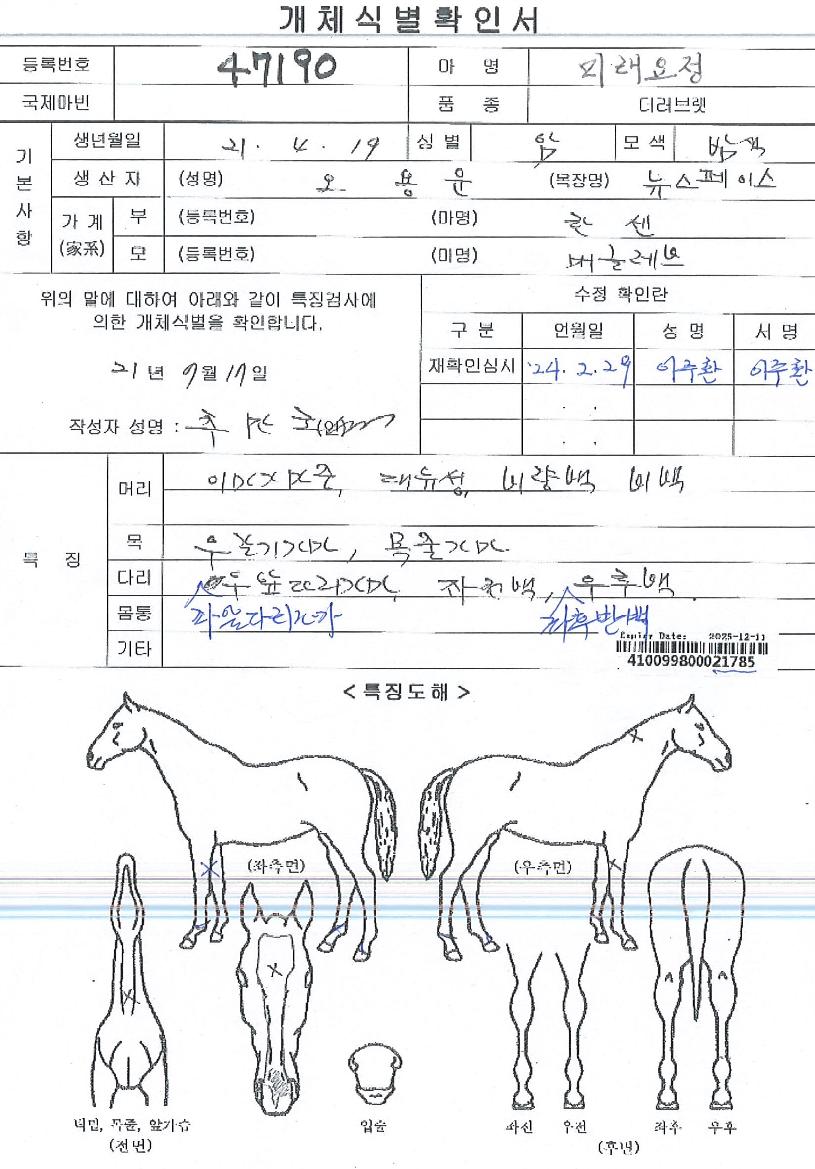 개체식별확인서
등록번호 47190 마 명 미래요정
국제마빈 품 종 디러브렛
기본사항
생년월일 21. 4. 19 성 별 암 모 색 밤색
생 산 자 (성명) 오 용 운 (목장명) 뉴스페이스
가 계 (家系) 부 (등록번호) (마명) 한 센
모 (등록번호) (미명)
위의 말에 대하여 아래와 같이 특징검사에
의한 개체식별을 확인합니다.
21 년 7 월 17 일
작성자 성명 :
수정 확인란
구 분 언월일 성 명 서 명
재확인심시 '24. 2. 29 이주환 이주환
. .
. .
특 징
머리 비량백 비백
목
다리 좌전백, 우후백.
몸통 좌후반백
기타
Expiry Date: 2025-12-11
410099800021785
< 특징도해 >
(좌측면) (우측면)
턱밑, 목줄, 앞가슴 입술 좌전 우전 좌후 우후
(전면) (후면)